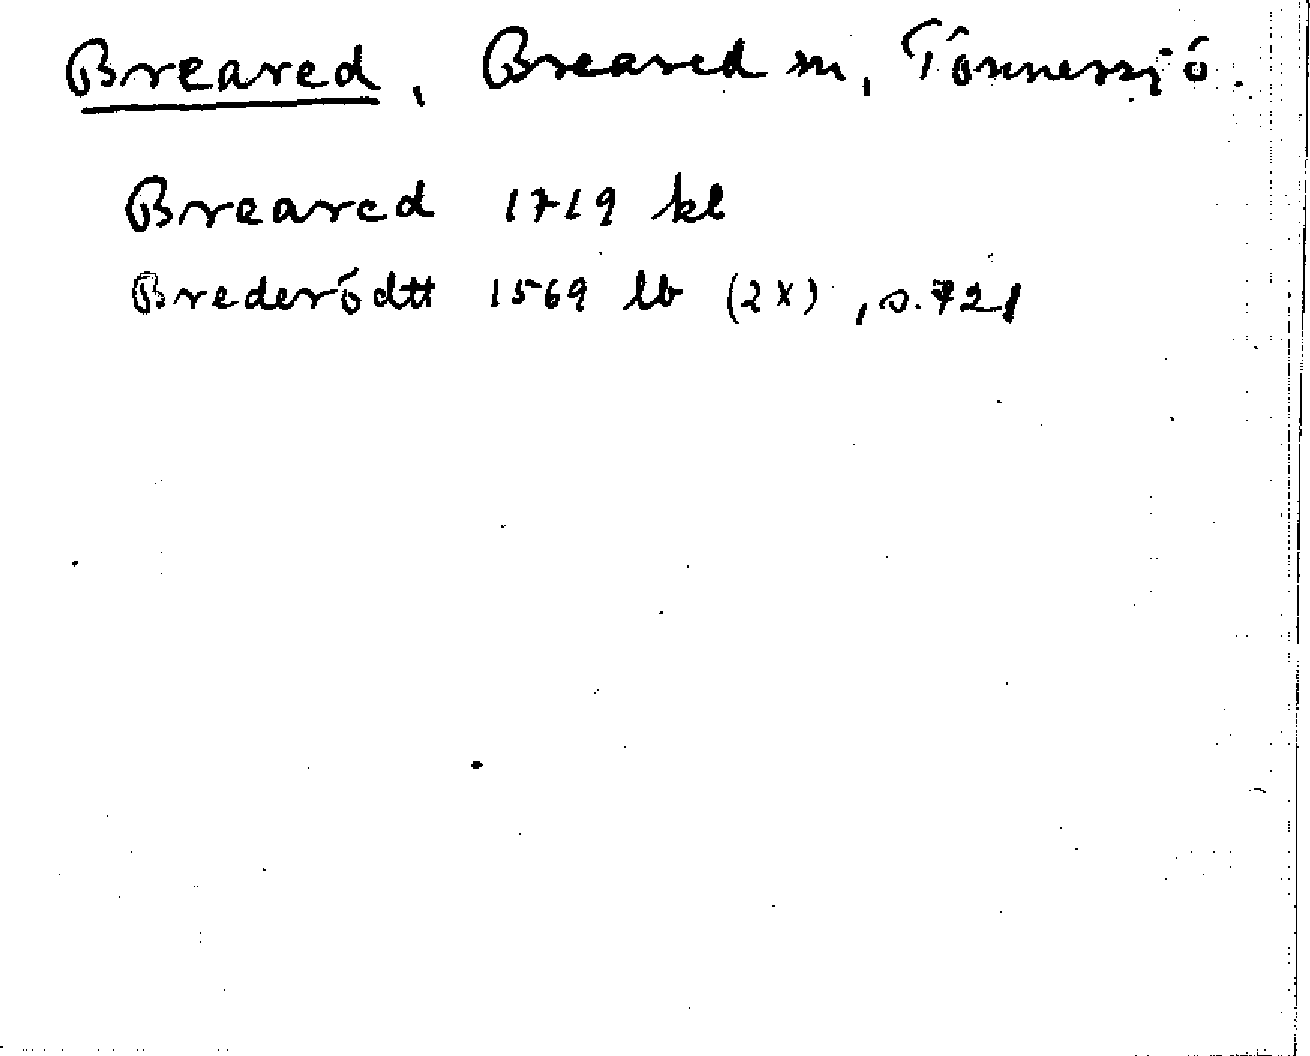 Breared, Breared sn, Tönnersjö.
Breared 1719 kl
Brederödtt 1569 lb (2x), s. 721